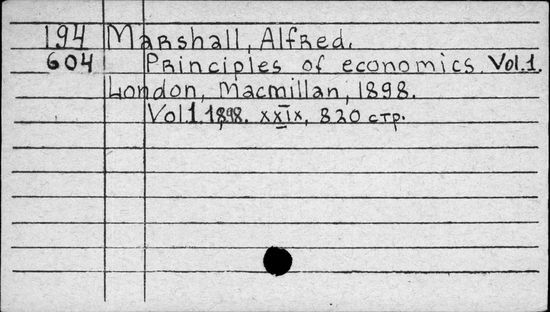 194 Marshall, Alfred.
604 Principles of economics. Vol. 1.
London, Macmillan, 1898.
Vol 1. 1898. XXIX, 820 стр.